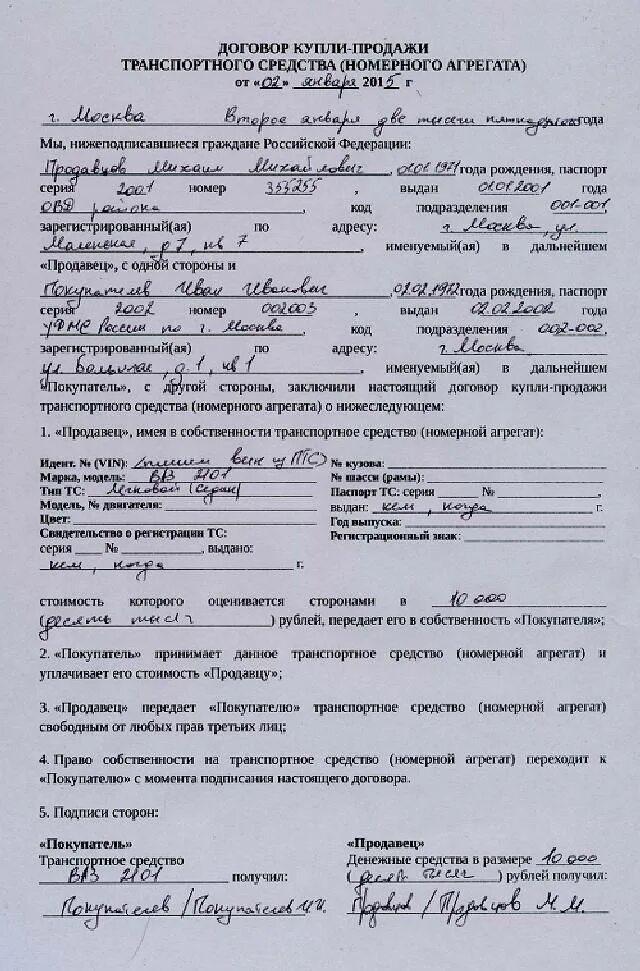 ДОГОВОР КУПЛИ-ПРОДАЖИ
ТРАНСПОРТНОГО СРЕДСТВА (НОМЕРНОГО АГРЕГАТА)
от «02» января 2015 г
г. Москва Второе января две тысячи года
Мы, нижеподписавшиеся граждане Российской Федерации:
Продавцов Михаил Михайлович, 01.01.1971 года рождения, паспорт
серия 2001 номер 355255, выдан 01.01.2001 года
ОВД района, код подразделения 001-001,
зарегистрированный(ая) по адресу: г. Москва, ул.
д 7, кв 7, именуемый(ая) в дальнейшем
«Продавец», с одной стороны и
Покупателев Иван Иванович, 02.02.1972 года рождения, паспорт
серия 2002 номер 002003, выдан 02.02.2002 года
УФМС России по г. Москва, код подразделения 002-002,
зарегистрированный(ая) по адресу: г. Москва
ул Большая, д. 1, кв 1, именуемый(ая) в дальнейшем
«Покупатель», с другой стороны, заключили настоящий договор купли-продажи
транспортного средства (номерного агрегата) о нижеследующем:
1. «Продавец», имея в собственности транспортное средство (номерной агрегат):
Идент. № (VIN): (пишем вин из ПТС) № кузова:
Марка, модель: ВАЗ 2101 № шасси (рамы):
Тип ТС: Легковой (седан) Паспорт ТС: серия № ,
Модель, № двигателя: выдан: кем, когда г.
Цвет: Год выпуска:
Свидетельство о регистрации ТС: Регистрационный знак:
серия № , выдано:
кем, когда г.
стоимость которого оценивается сторонами в 10 000
(десять тысяч) рублей, передает его в собственность «Покупателя»;
2. «Покупатель» принимает данное транспортное средство (номерной агрегат) и
уплачивает его стоимость «Продавцу»;
3. «Продавец» передает «Покупателю» транспортное средство (номерной агрегат)
свободным от любых прав третьих лиц;
4. Право собственности на транспортное средство (номерной агрегат) переходит к
«Покупателю» с момента подписания настоящего договора.
5. Подписи сторон:
«Покупатель» «Продавец»
Транспортное средство Денежные средства в размере 10 000
ВАЗ 2101 получил: (десять тысяч) рублей получил:
Покупателев / Покупателев И.И. Продавцов / Продавцов М.М.